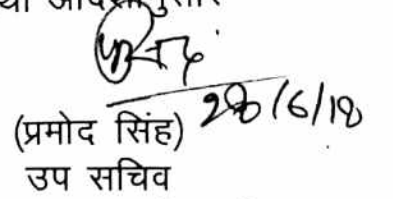 (प्रमोद सिंह) 28/6/18
उप सचिव